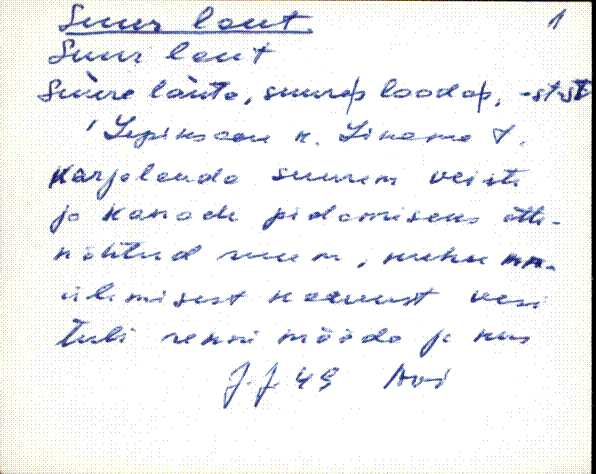 Suur laut. 1
Suur laut
Suure lauta, suurap laodap, -st
k. Linama
Karjalauda suurem veiste
ja kanade pidamiseks ette-
nähtud ruum, kuhu nn.
ülemisest kaevust vesi
tuli renni mööda ja kus
J.J. 49 Avi